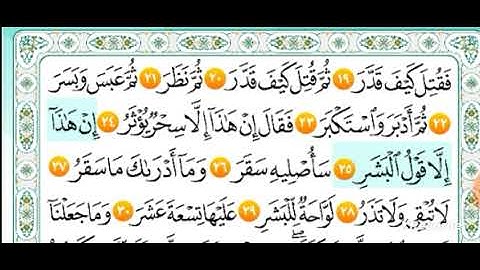 فَقُتِلَ كَيْفَ قَدَّرَ ١٩ ثُمَّ قُتِلَ كَيْفَ قَدَّرَ ٢٠ ثُمَّ نَظَرَ ٢١ ثُمَّ عَبَسَ وَبَسَرَ
٢٢ ثُمَّ أَدْبَرَ وَاسْتَكْبَرَ ٢٣ فَقَالَ إِنْ هَٰذَا إِلَّا سِحْرٌ يُؤْثَرُ ٢٤ إِنْ هَٰذَا
إِلَّا قَوْلُ الْبَشَرِ ٢٥ سَأُصْلِيهِ سَقَرَ ٢٦ وَمَا أَدْرَاكَ مَا سَقَرُ ٢٧
لَا تُبْقِي وَلَا تَذَرُ ٢٨ لَوَّاحَةٌ لِّلْبَشَرِ ٢٩ عَلَيْهَا تِسْعَةَ عَشَرَ ٣٠ وَمَا جَعَلْنَا